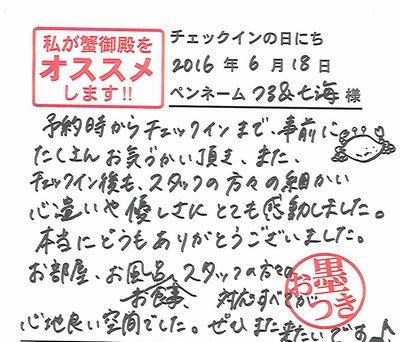 私が蟹御殿を
オススメ
します!!
チェックインの日にち
2016年6月18日
ペンネーム つる&七海 様
予約時からチェックインまで、事前に
たくさんお気づかい頂き、また、
チェックイン後も、スタッフの方々の細かい
心遣いや優しさにとても感動しました。
本当にどうもありがとうございました。
お部屋、お風呂、スタッフの方々の
お食事、対応すべてが
心地良い空間でした。ぜひまた来たいです♪
お墨つき